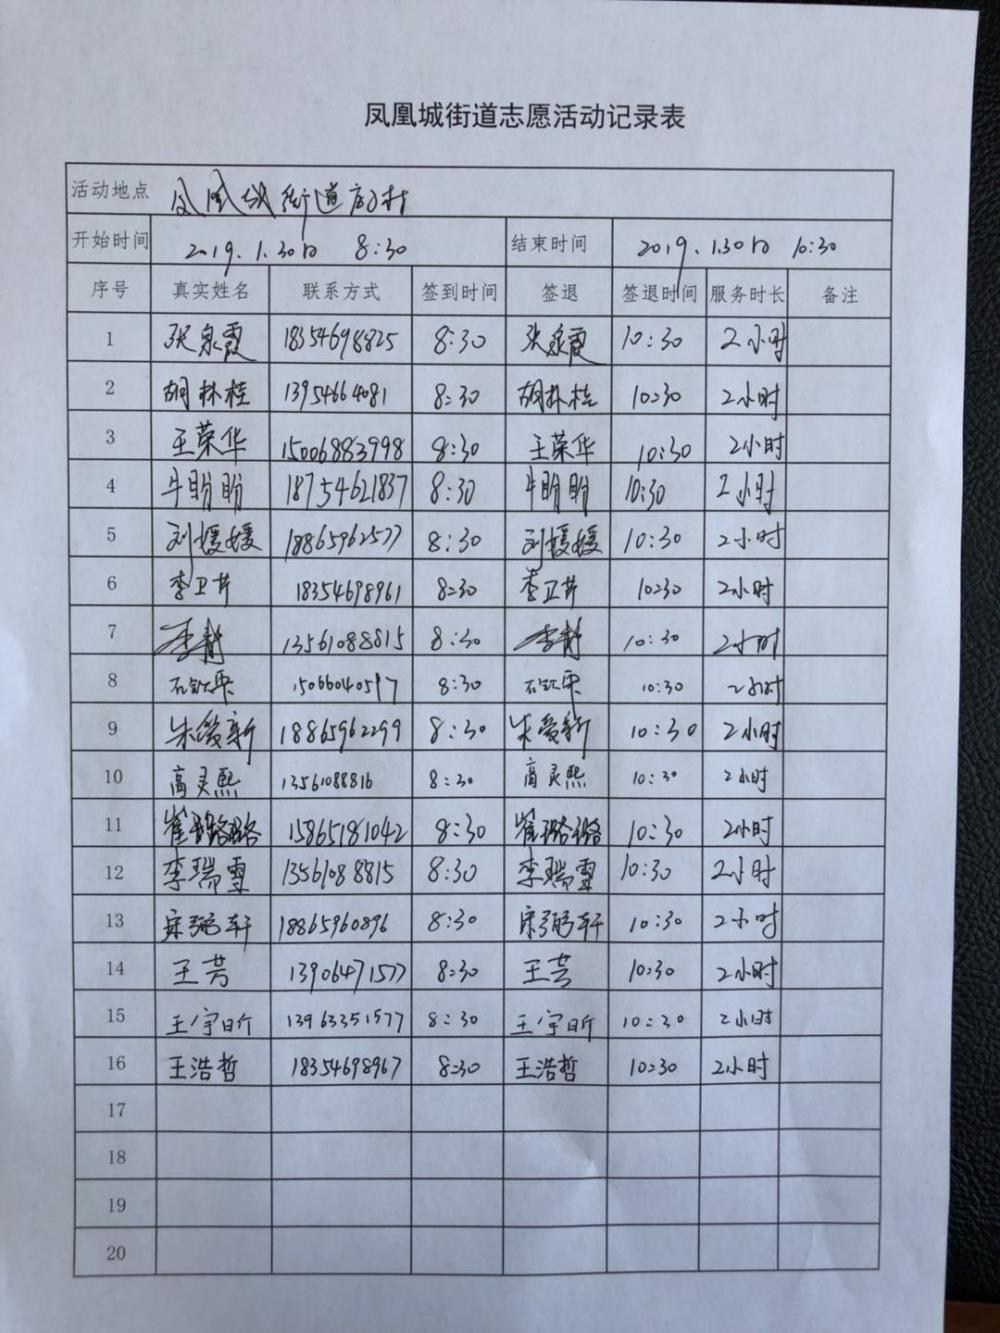 凤凰城街道志愿活动记录表
活动地点 凤凰城街道 村
开始时间 2019.1.30日 8:30 结束时间 2019.1.30日 10:30
序号 真实姓名 联系方式 签到时间 签退 签退时间 服务时长 备注
1 张泉霞 18354698825 8:30 张泉霞 10:30 2小时
2 胡林桂 13954664081 8:30 胡林桂 10:30 2小时
3 王荣华 15006883998 8:30 王荣华 10:30 2小时
4 牛盼盼 18754621837 8:30 牛盼盼 10:30 2小时
5 刘媛媛 18865962577 8:30 刘媛媛 10:30 2小时
6 李卫芹 18354698961 8:30 李卫芹 10:30 2小时
7 李静 13561088815 8:30 李静 10:30 2小时
8 15066040597 8:30 10:30 2小时
9 朱爱新 18865962299 8:30 朱爱新 10:30 2小时
10 高灵熙 13561088816 8:30 高灵熙 10:30 2小时
11 崔璐璐 15865181042 8:30 崔璐璐 10:30 2小时
12 李瑞雪 13561088815 8:30 李瑞雪 10:30 2小时
13 宋弼轩 18865960896 8:30 宋弼轩 10:30 2小时
14 王芳 13906471577 8:30 王芸 10:30 2小时
15 王宇昕 13963351577 8:30 王宇昕 10:30 2小时
16 王浩哲 18354698967 8:30 王浩哲 10:30 2小时
17
18
19
20